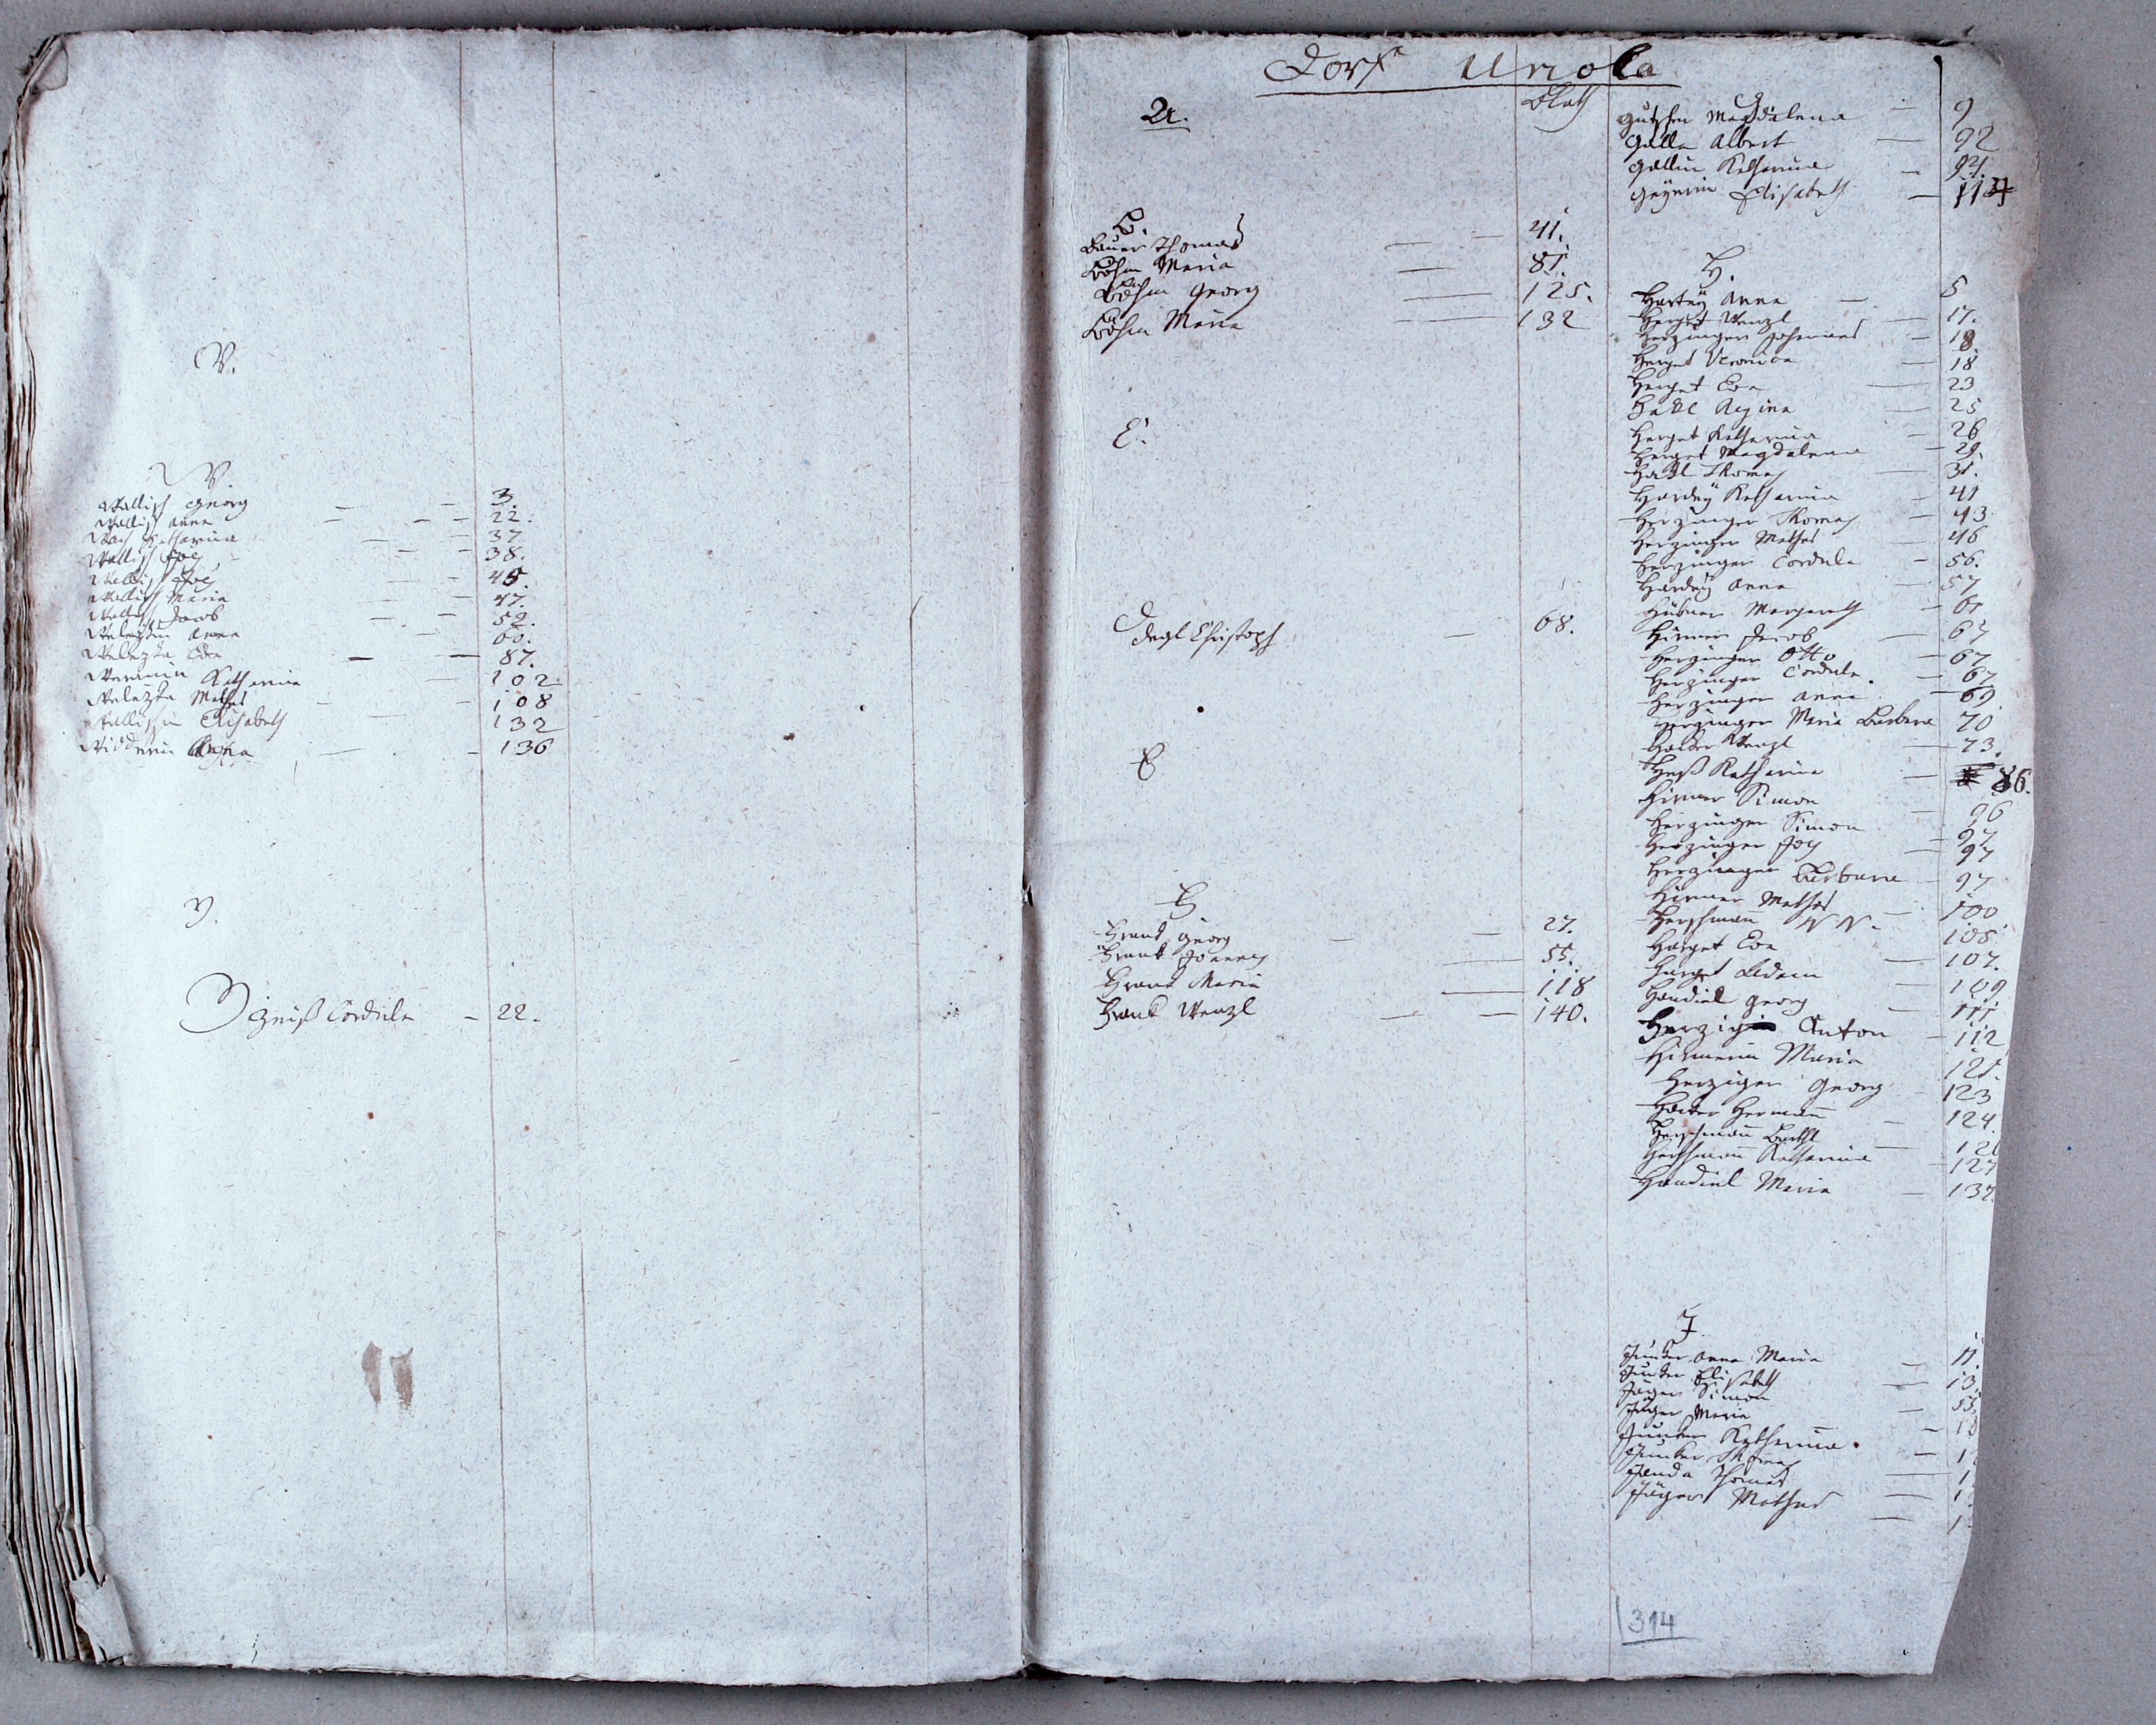 V.
W
Wallisch Georg — — 3.
Wallisch Anna — — — 22.
Katharina — — 37
Wallisch Jos — — 38.
Wallisch Jos — — 45.
Wallisch Maria — — 47.
Wallisch Jacob — — 52.
Anna — 60.
Weleyka Eva — — 87.
Katharina — 102
Weleyka Mathes — — 108
Wallischin Elisabeth — 132
— — 136
Y.
Z
Cordula — 22.
Dorf Unola
Blatt
A.
B.
Bauer Thomas — — 41.
Böhm Maria — 81.
Böhm Georg — 125.
Böhm Maria — 132
C.
D
Degl Christoph — 68.
E
F
Frank Georg — — 27.
Frank Joannes — 55.
Frank Maria — 118
Frank Wenzl — — 140.
G
Magdalena — 9
Galla Albert — 92
Gallin Katharina — 94.
Elisabeth — 114
H.
Hartey Anna — 5
Herget Wenzl — 17.
Herzinger Johannes — 18
Herget Veronica — 18
Herget Eva — 23
Hakl Regina — 25
Herget Katharina — 26
Herget Magdalena — 29.
Hakl Thomas — 31.
Hardey Katharina — 41
Herzinger Thomas — 43
Herzinger Mathes — 46
Herzinger Cordula — 56.
Hardey Anna — 57
Hübner Margareth — 61
Hirmer Jacob — 67
Herzinger Otto — 67
Herzinger Cordula. — 67
Herzinger Anna — 69
Herzinger Maria Barbara 70
Wenzl — 73.
Heß Katharina — 86.
Hirmer Simon — 96
Herzinger Simon — 97
Herzinger Jos — 97
Herzinger Barbara — 97
Hirmer Mathes — 100
Herschmann N N. — 105
Herget Eva — 107.
Herget Adam — 109
Handiel Georg — 111
Herzig Anton — 112
Hirmerin Maria — 121.
Herziger Georg — 123
Hermann — 124.
Herschmann Barthl — 12
Herschmann Katharina — 127
Handiel Maria — 137.
J.
Junker Anna Maria — 11.
Junker Elisabeth — 13.
Jäger Simon — 53.
Jäger Maria — 1
Junker Katharina. — 1
Junker Thomas — 1
Janda Thomas — 1
Jäger Mathes — 1
314